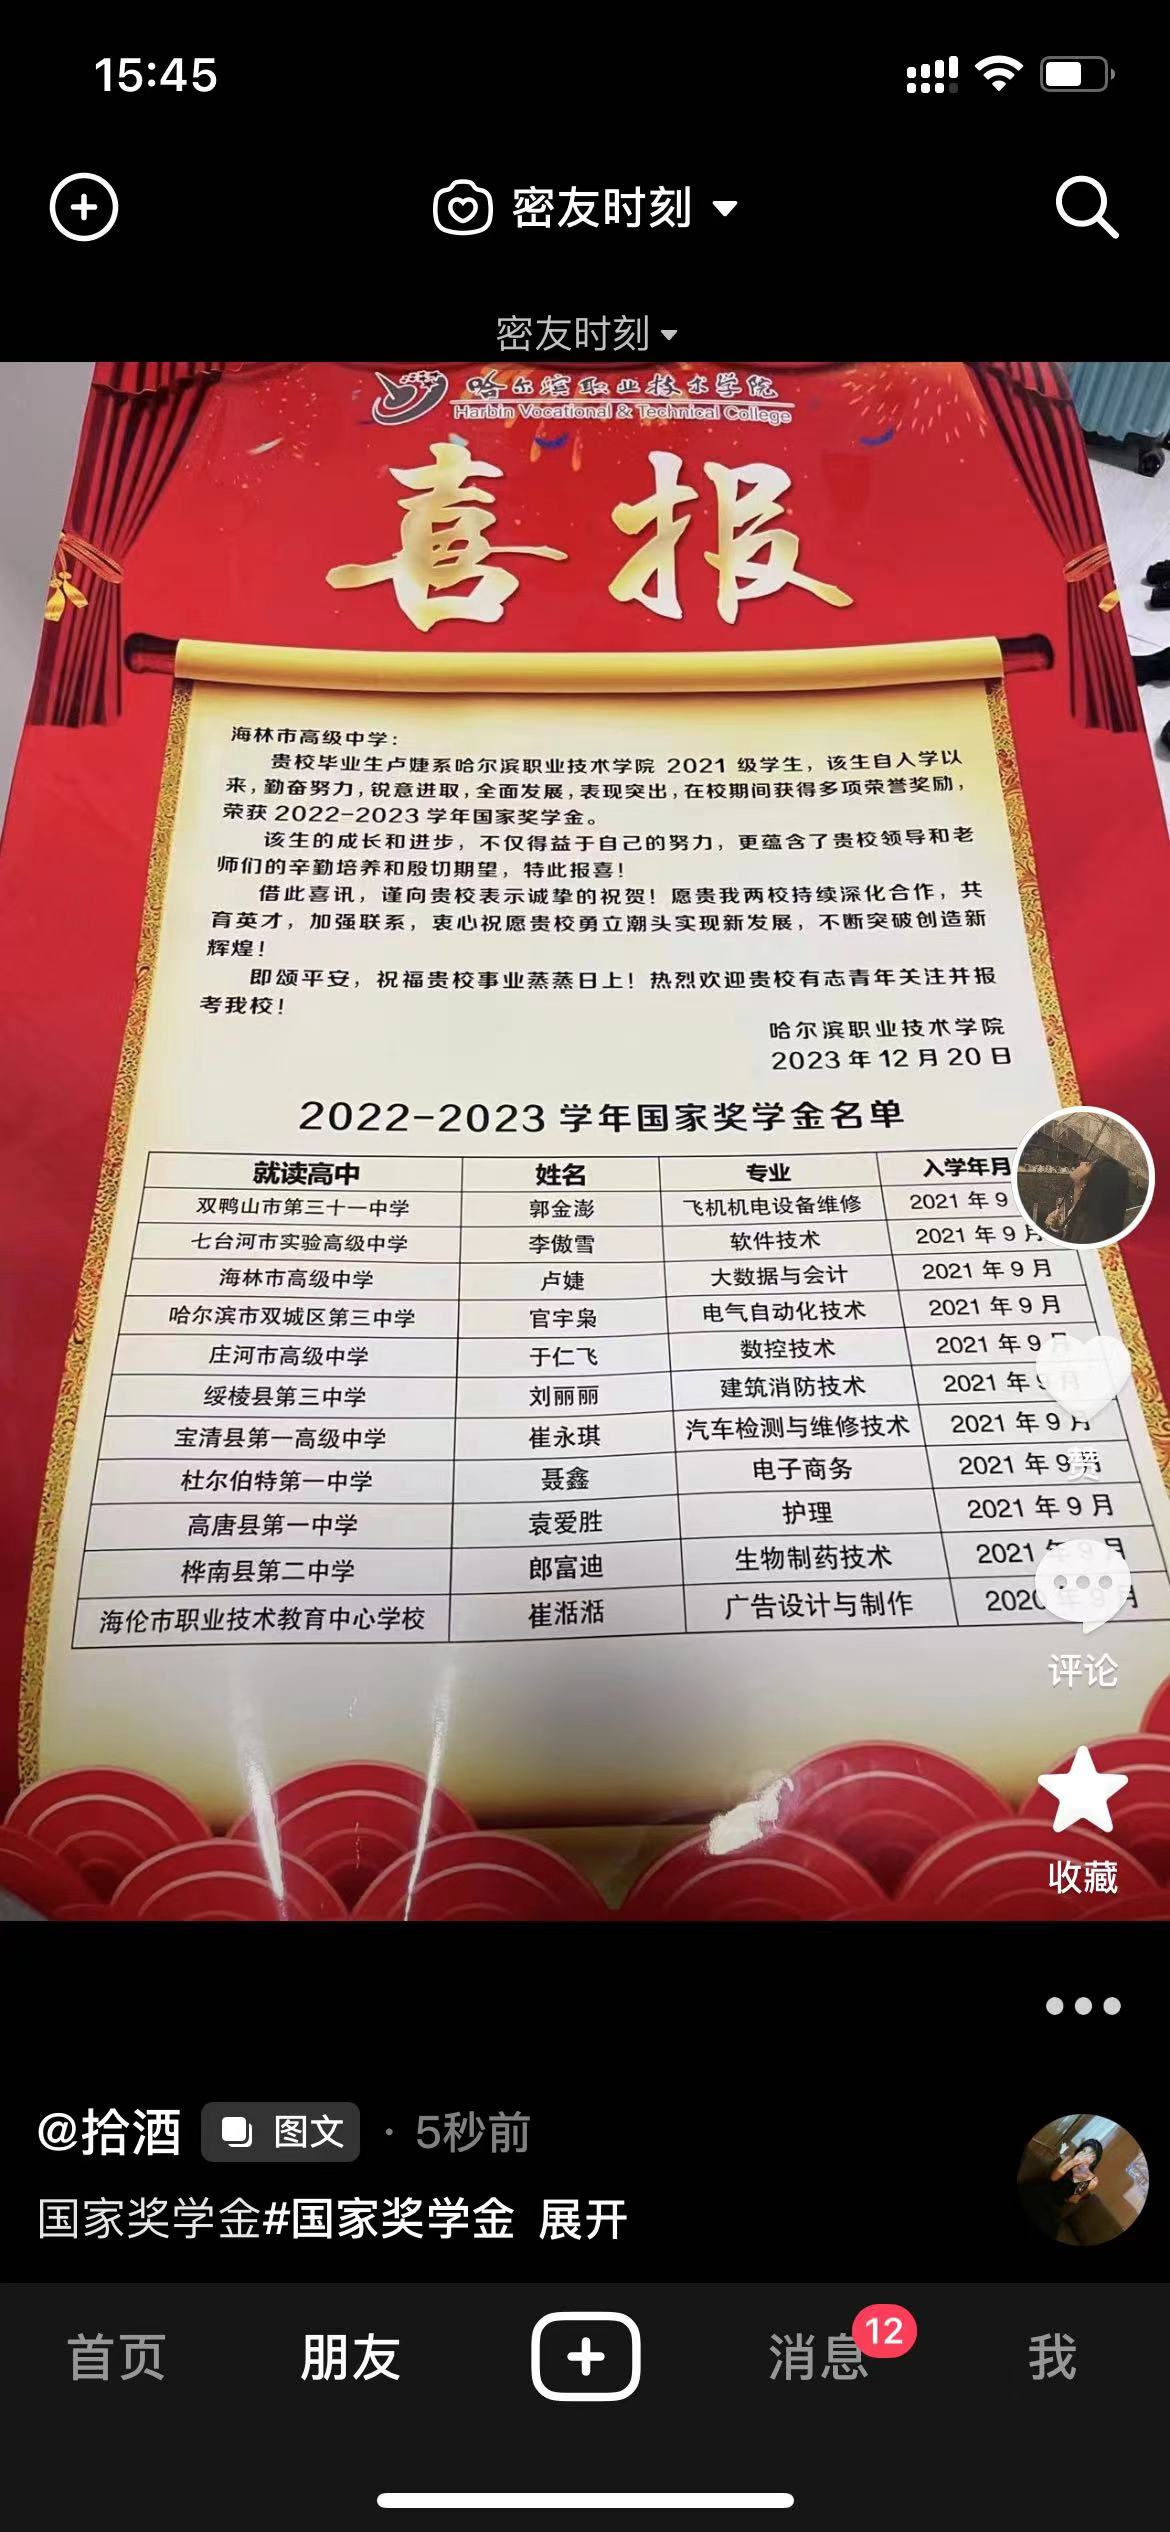 15:45
密友时刻
密友时刻
哈尔滨职业技术学院
Harbin Vocational & Technical College
喜报
海林市高级中学：
贵校毕业生卢婕系哈尔滨职业技术学院 2021 级学生，该生自入学以
来，勤奋努力，锐意进取，全面发展，表现突出，在校期间获得多项荣誉奖励，
荣获 2022-2023 学年国家奖学金。
该生的成长和进步，不仅得益于自己的努力，更蕴含了贵校领导和老
师们的辛勤培养和殷切期望，特此报喜！
借此喜讯，谨向贵校表示诚挚的祝贺！愿贵我两校持续深化合作，共
育英才，加强联系，衷心祝愿贵校勇立潮头实现新发展，不断突破创造新
辉煌！
即颂平安，祝福贵校事业蒸蒸日上！热烈欢迎贵校有志青年关注并报
考我校！
哈尔滨职业技术学院
2023 年 12 月 20 日
2022-2023 学年国家奖学金名单
就读高中 姓名 专业 入学年月
双鸭山市第三十一中学 郭金澎 飞机机电设备维修 2021 年 9
七台河市实验高级中学 李傲雪 软件技术 2021 年 9 月
海林市高级中学 卢婕 大数据与会计 2021 年 9 月
哈尔滨市双城区第三中学 官宇枭 电气自动化技术 2021 年 9 月
庄河市高级中学 于仁飞 数控技术 2021 年 9 月
绥棱县第三中学 刘丽丽 建筑消防技术 2021 年 9 月
宝清县第一高级中学 崔永琪 汽车检测与维修技术 2021 年 9 月
杜尔伯特第一中学 聂鑫 电子商务 2021 年 9 月
赞
高唐县第一中学 袁爱胜 护理 2021 年 9 月
桦南县第二中学 郎富迪 生物制药技术 2021 年 9 月
海伦市职业技术教育中心学校 崔湉湉 广告设计与制作 2020 年 9 月
评论
收藏
@拾酒 图文 · 5秒前
国家奖学金#国家奖学金 展开
首页 朋友 消息 12 我